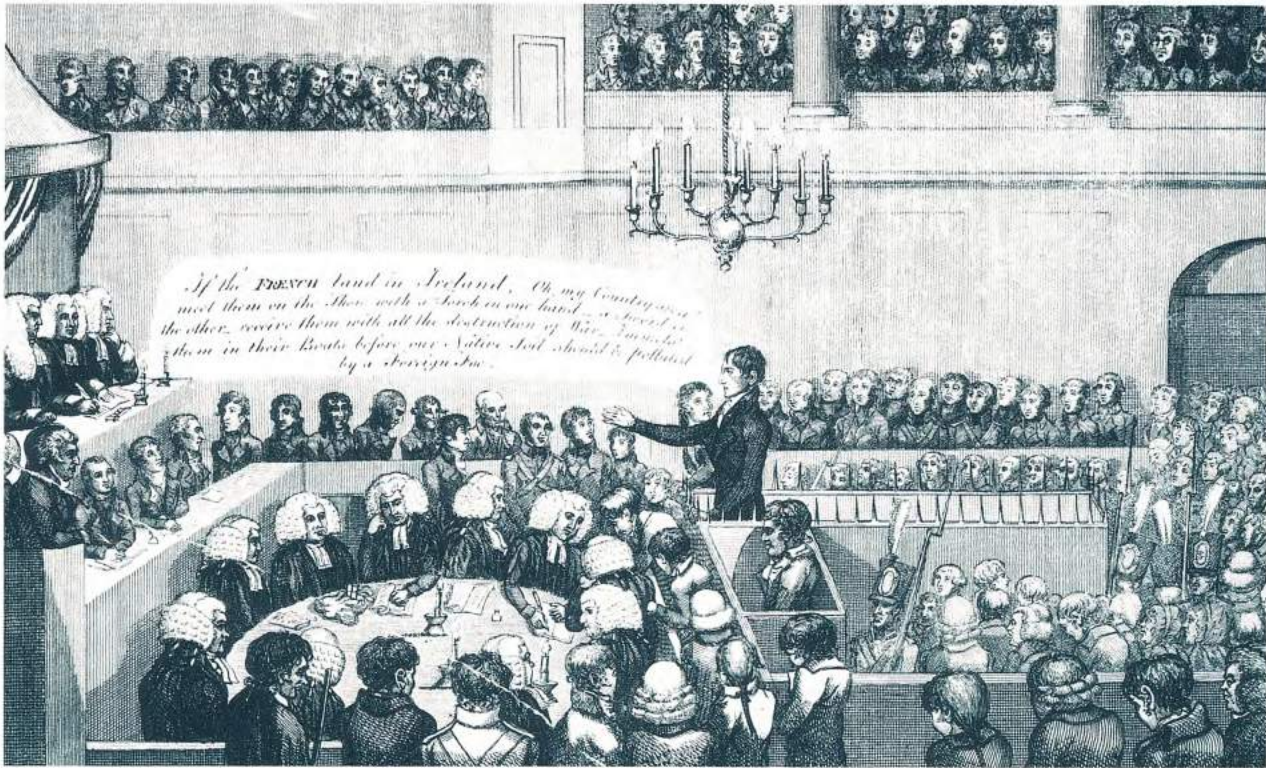 If the FRENCH land in Ireland, Oh my Countrymen
meet them on the Shore with a Torch in one hand a Sword in
the other receive them with all the destruction of War
them in their Boats before our Native Soil should be polluted
by a Foreign Foe.